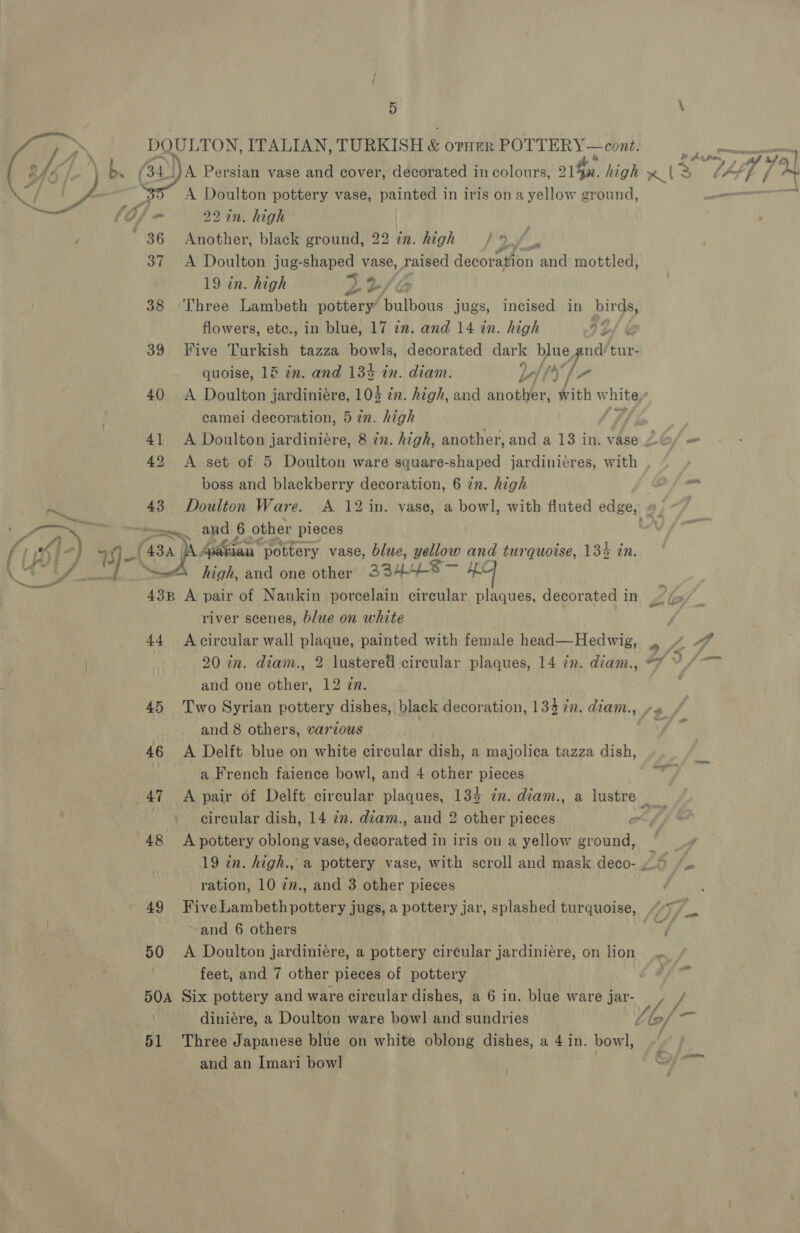 5
DOULTON, ITALIAN, TURKISH & OTHER POTTERY—cont.
34 A Persian vase and cover, decorated in colours, 21½in. high
35 A Doulton pottery vase, painted in iris on a yellow ground,
22 in. high
36 Another, black ground, 22 in. high
37 A Doulton jug-shaped vase, raised decoration and mottled,
19 in. high
38 Three Lambeth pottery bulbous jugs, incised in birds,
flowers, etc., in blue, 17 in. and 14 in. high
39 Five Turkish tazza bowls, decorated dark blue and tur-
quoise, 15 in. and 13½ in. diam.
40 A Doulton jardinière, 10½ in. high, and another, with white
camei decoration, 5 in. high
41 A Doulton jardinière, 8 in. high, another, and a 13 in. vase
42 A set of 5 Doulton ware square-shaped jardinières, with
boss and blackberry decoration, 6 in. high
43 Doulton Ware. A 12 in. vase, a bowl, with fluted edge,
and 6 other pieces
43A A Parian pottery vase, blue, yellow and turquoise, 13½ in.
high, and one other 33448 – 49
43B A pair of Nankin porcelain circular plaques, decorated in
river scenes, blue on white
44 A circular wall plaque, painted with female head—Hedwig,
20 in. diam., 2 lustered circular plaques, 14 in. diam.,
and one other, 12 in.
45 Two Syrian pottery dishes, black decoration, 13½ in. diam.,
and 8 others, various
46 A Delft blue on white circular dish, a majolica tazza dish,
a French faience bowl, and 4 other pieces
47 A pair of Delft circular plaques, 13½ in. diam., a lustre
circular dish, 14 in. diam., and 2 other pieces
48 A pottery oblong vase, decorated in iris on a yellow ground,
19 in. high., a pottery vase, with scroll and mask deco-
ration, 10 in., and 3 other pieces
49 Five Lambeth pottery jugs, a pottery jar, splashed turquoise,
and 6 others
50 A Doulton jardinière, a pottery circular jardinière, on lion
feet, and 7 other pieces of pottery
50A Six pottery and ware circular dishes, a 6 in. blue ware jar-
dinière, a Doulton ware bowl and sundries
51 Three Japanese blue on white oblong dishes, a 4 in. bowl,
and an Imari bowl